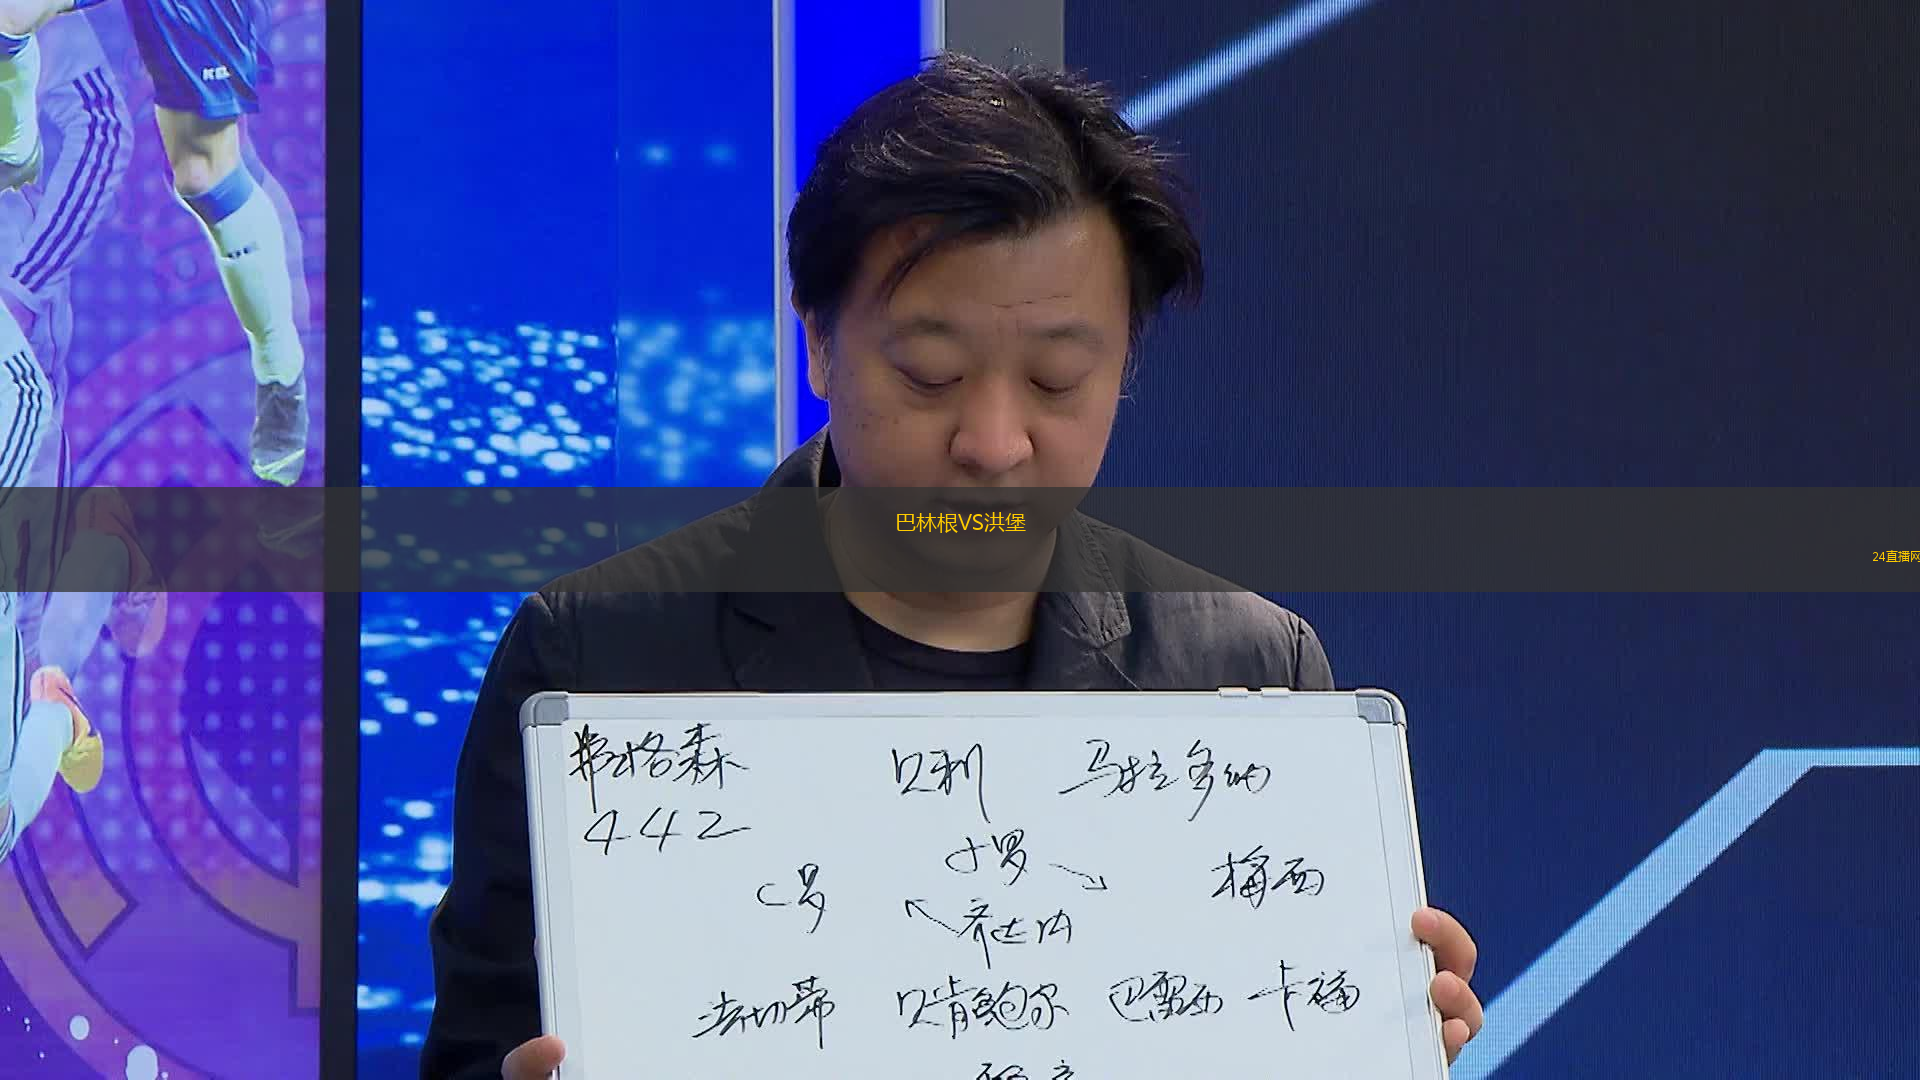 KEL
巴林根VS洪堡
24直播网
弗格森 贝利 马拉多纳
442
小罗
C罗 梅西
齐达内
法切蒂 贝肯鲍尔 巴雷西 卡福